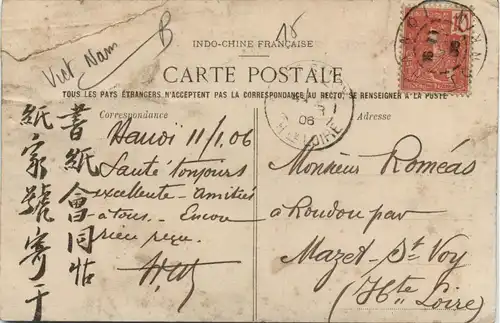 Viet Nam
B
18
INDO-CHINE FRANÇAISE
CARTE POSTALE
TOUS LES PAYS ÉTRANGERS N'ACCEPTENT PAS LA CORRESPONDANCE AU RECTO, SE RENSEIGNER A LA POSTE
Correspondance
Adresse
Hanoï 11/1/06
Santé toujours
excellente - Amitiés
à tous. - Encore
rien reçu.
書紙會同帖
紙家號寄于
06
LOIRE
Monsieur Roméas
à Roudon par
Mazet-St Voy
(Hte Loire)